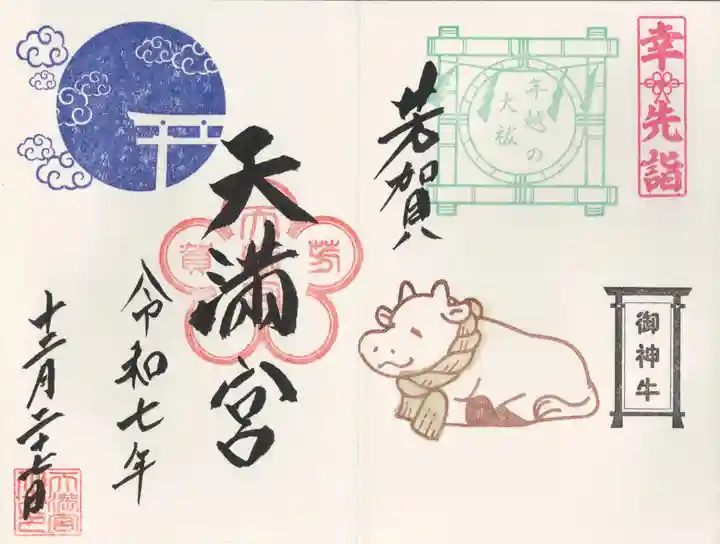 幸先詣
年越の
大祓
芳賀
御神牛
天満宮
芳賀
令和七年
十二月二十七日